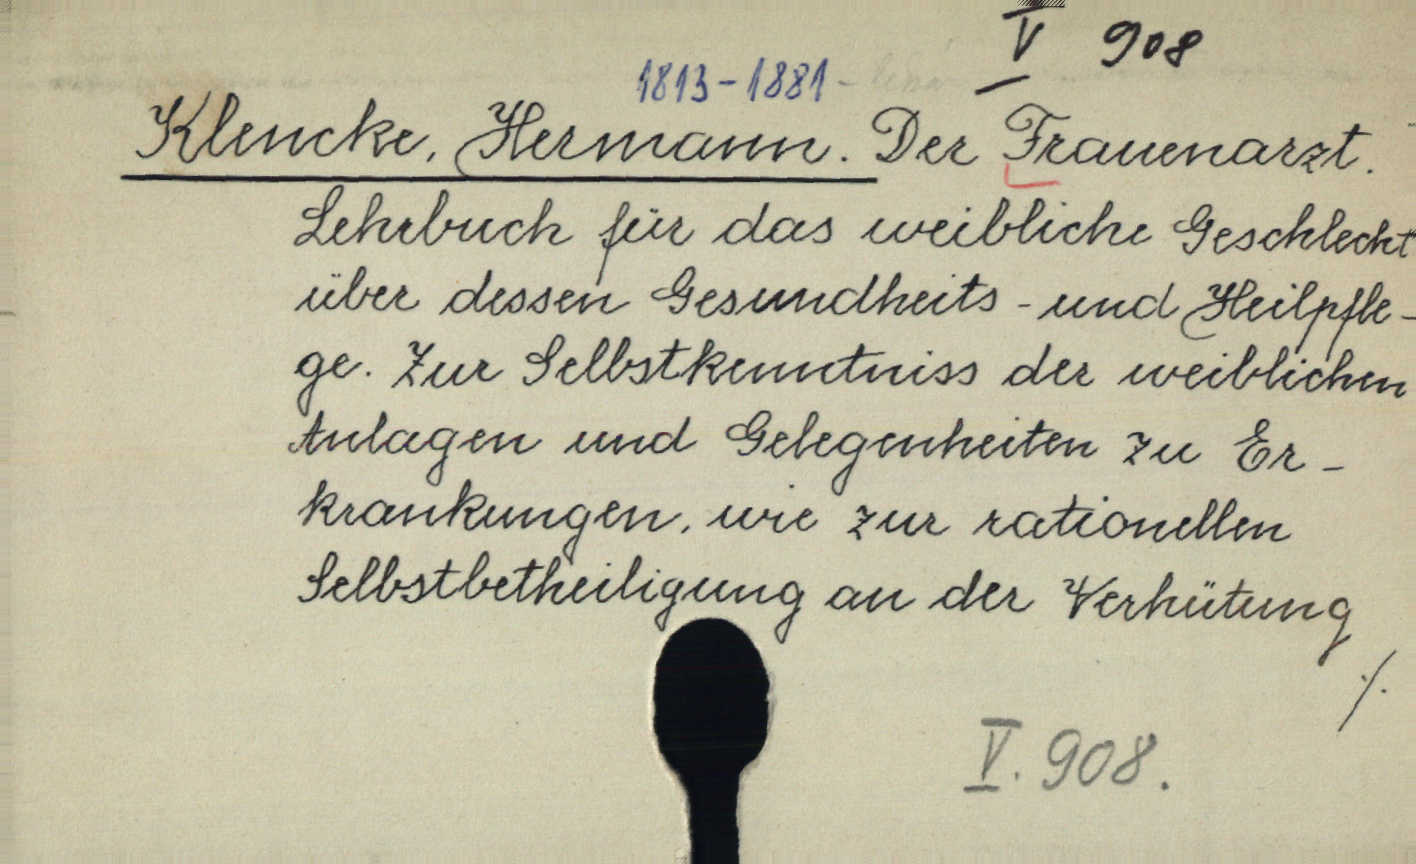 V 908
1813-1881
Klencke, Hermann. Der Frauenarzt.
Lehrbuch für das weibliche Geschlecht
über dessen Gesundheits- und Heilpfle-
ge. Zur Selbstkenntniss der weiblichen
Anlagen und Gelegenheiten zu Er-
krankungen, wie zur rationellen
Selbstbetheiligung an der Verhütung
./.
V. 908.